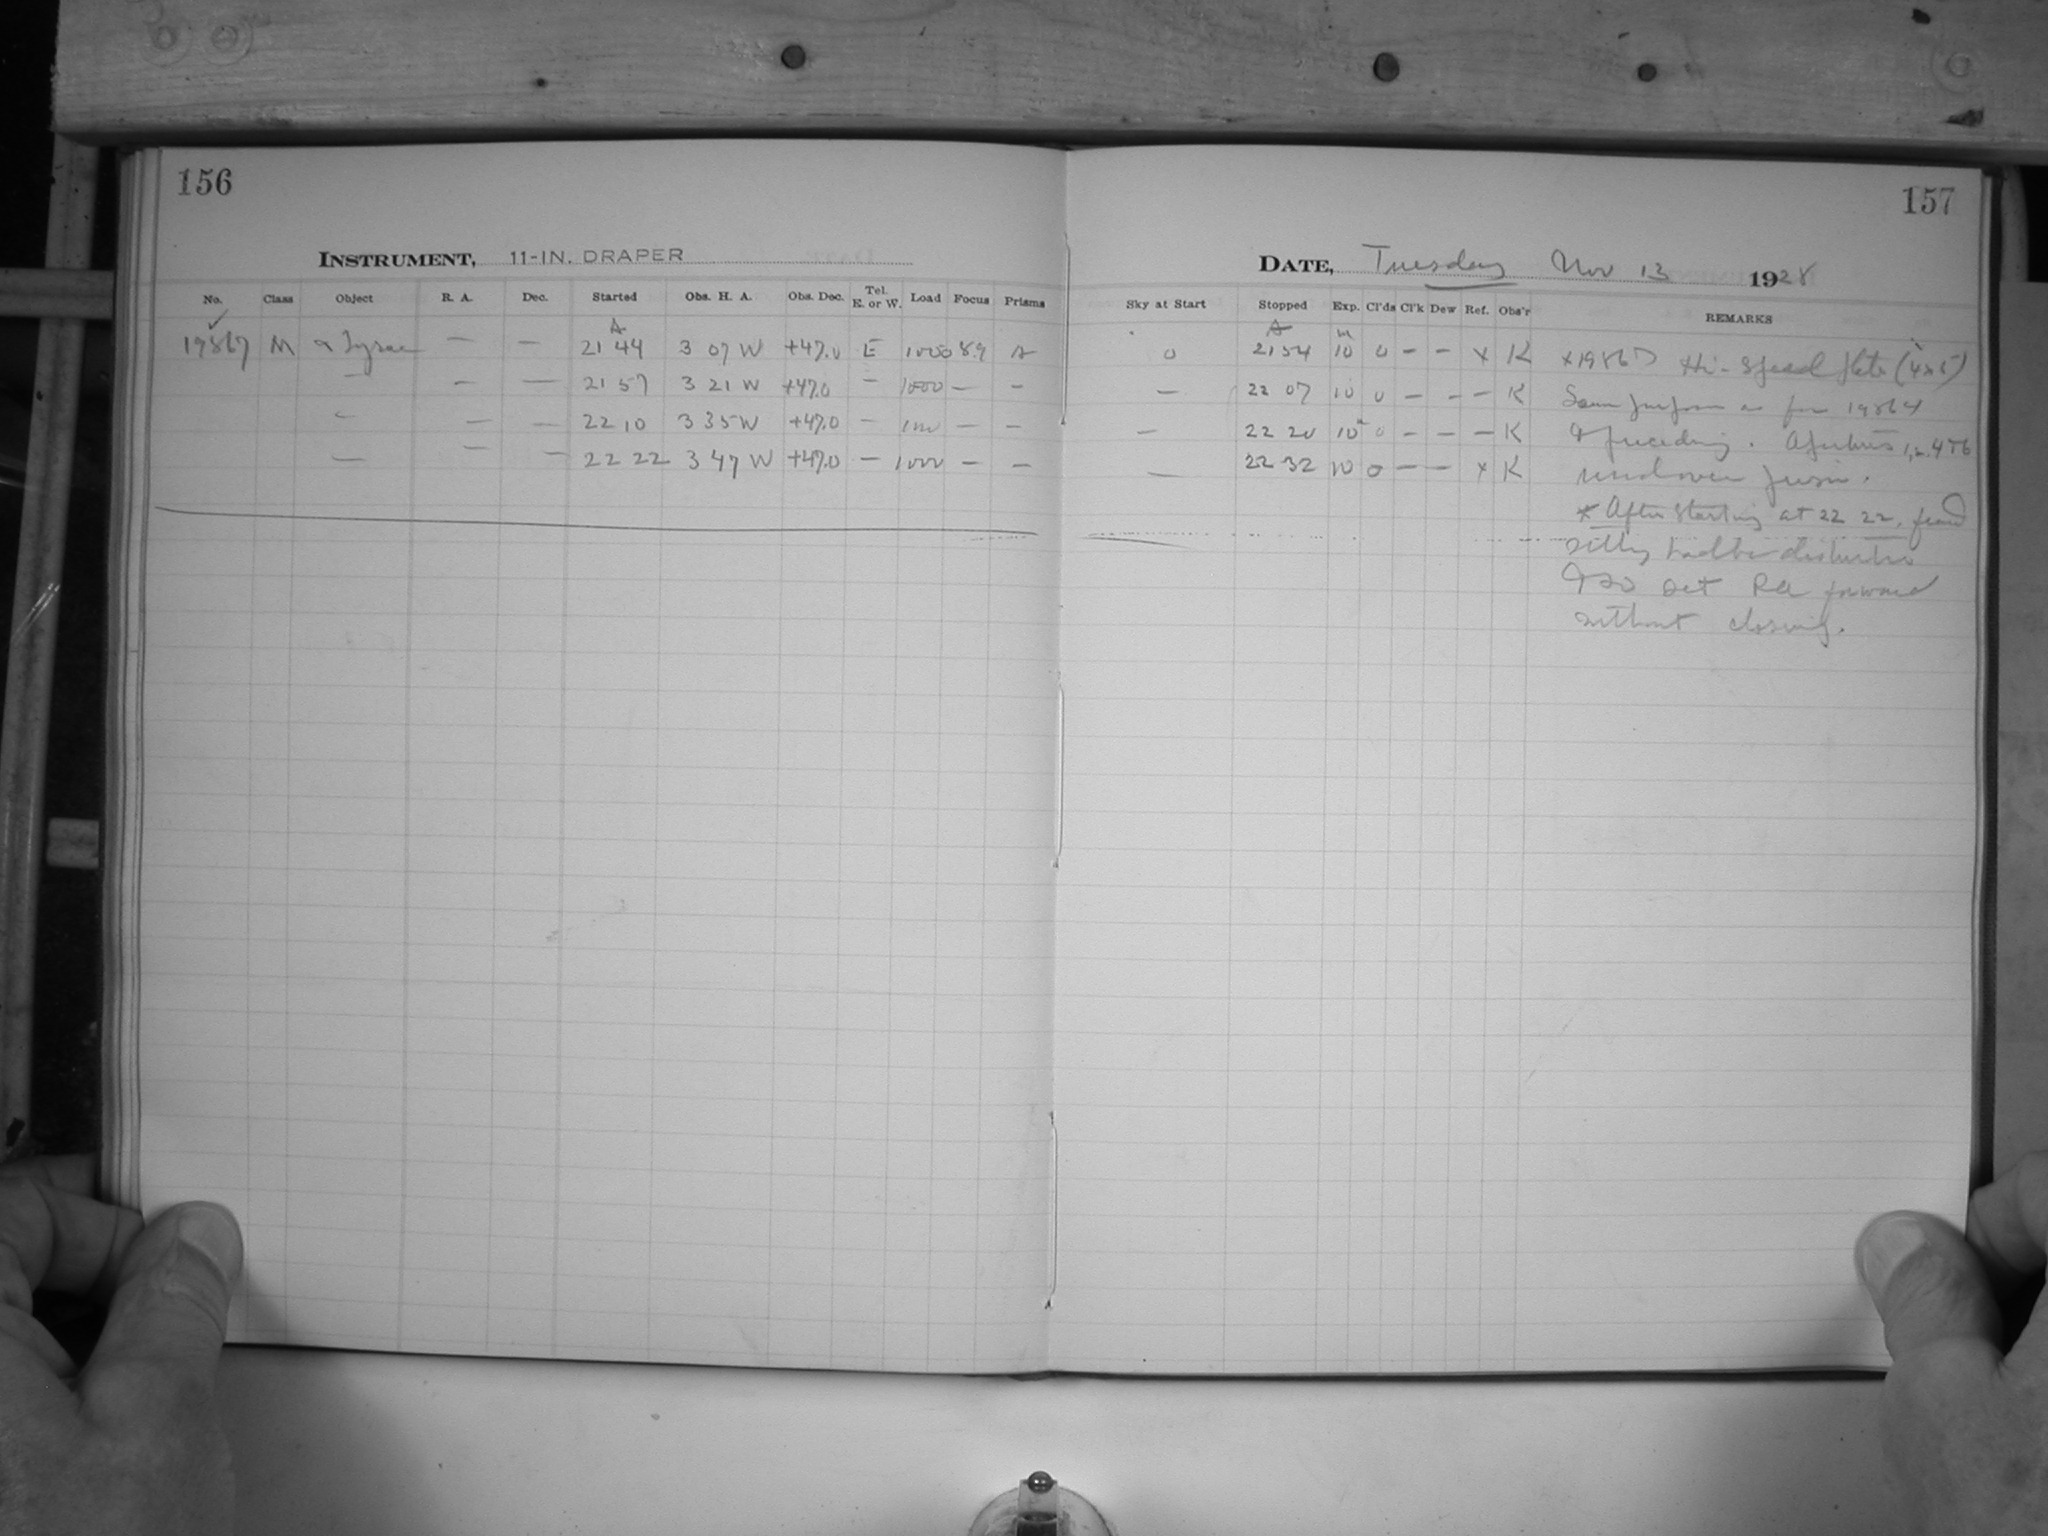 156
INSTRUMENT, 11-IN. DRAPER
No. Class Object R. A. Dec. Started Obs. H. A. Obs. Dec. Tel. E. or W. Load Focus Prisms
19867 M α Lyrae — — 21 44 3 07 W +47.0 E 1000 8.9 A
— — — 21 57 3 21 W +47.0 — 1000 — —
— — — 22 10 3 35 W +47.0 — 1000 — —
— — — 22 22 3 47 W +47.0 — 1000 — —
157
DATE, Tuesday Nov 13 1928
Sky at Start Stopped Exp. Cl'ds Cl'k Dew Ref. Obs'r REMARKS
0 21 54 10 0 — — x K x19867 Hi-Speed plate (4x5)
— 22 07 10 0 — — — K Same purpose as for 19864
— 22 20 10 0 — — — K & preceding. Apertures 1, 2, 4 & 6
— 22 32 10 0 — — x K used over prism.
* After starting at 22 22, found
setting had been disturbed
& so set RA forward
without closing.